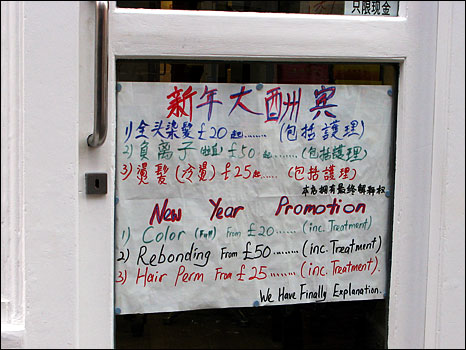 只限现金
新年大酬宾
1) 全头染髮 £20起........ (包括護理)
2) 負离子(拉直) £50起........ (包括護理)
3) 燙髮 (冷燙) £25起...... (包括護理)
本店拥有最终解释权
New Year Promotion
1) Color (Full) From £20...... (inc. Treatment)
2) Rebonding From £50........ (inc. Treatment)
3) Hair Perm From £25........ (inc. Treatment).
We Have Finally Explanation.